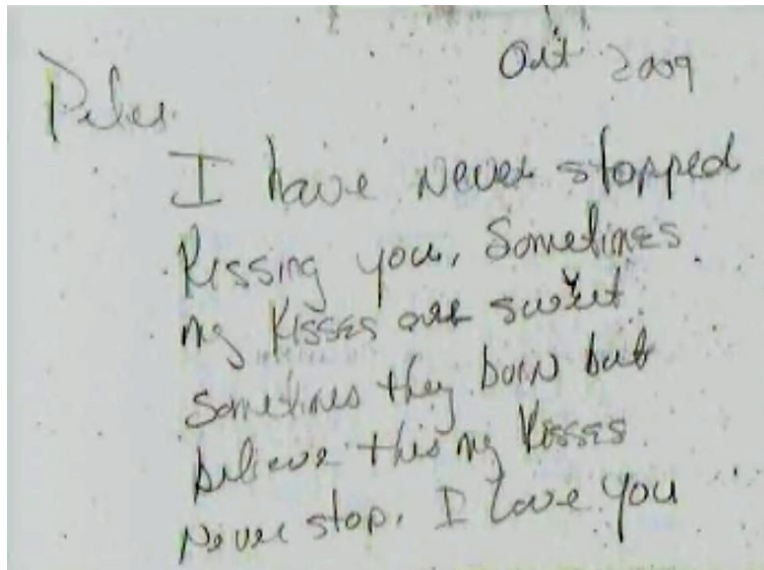 Oct 2009
Peter.
I have Never stopped
Kissing you, Sometimes
my Kisses are sweet
Sometimes they burn but
believe this my Kisses
Never stop. I love you